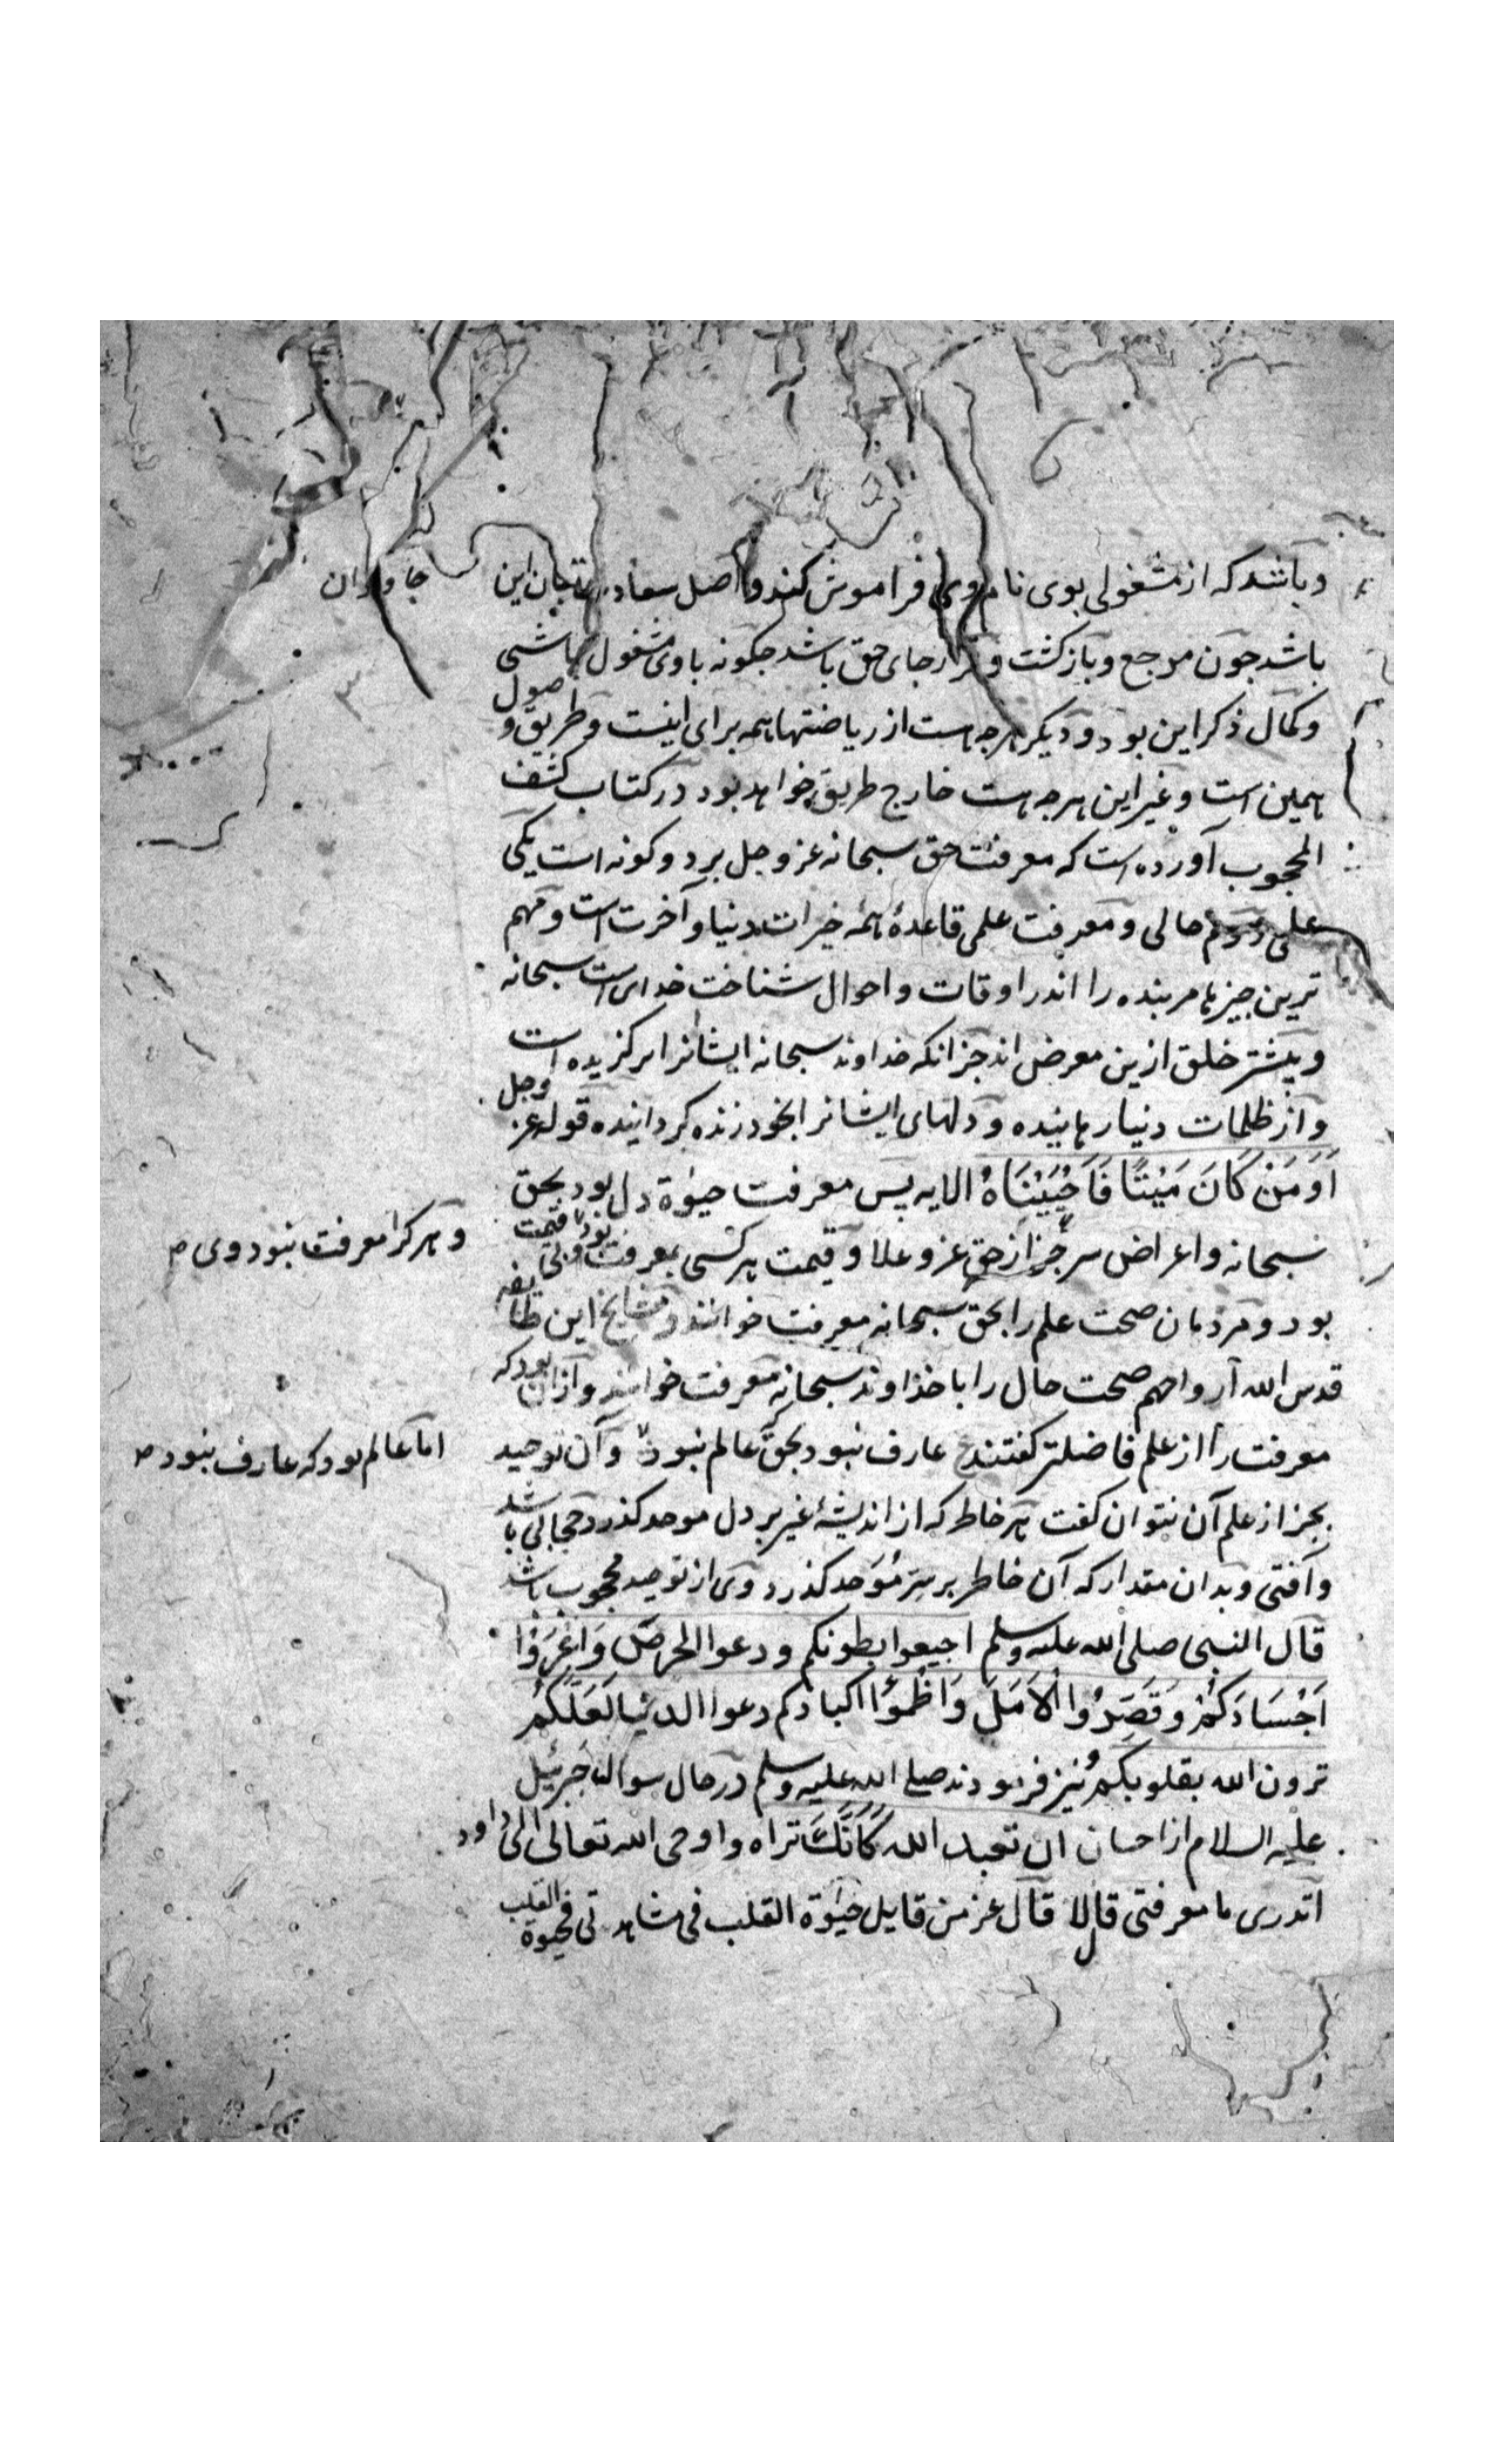 و باشد که از مشغولی بوی نام وی فراموش کند و اصل سعادتها جان این
جاودان
باشد جون مرجع و بازکشت و قرارجای حق باشد جکونه با وی مشغول باشی
و کمال ذکر این بود و دیکر هرجه هست از ریاضتها همه برای اینست و طریق وصول
همین است و غیر این هرجه هست خارج طریق خواهد بود در کتاب کشف
المحجوب آورده است که معرفت حق سبحانه عز و جل بر دو کونه است یکی
علمی دوم حالی و معرفت علمی قاعدۀ همه خیرات دنیا و آخرت است و مهم
ترین جیزها مر بنده را اندر اوقات و احوال شناخت خدای است سبحانه
و بیشتر خلق ازین معرض اند جز انکه خداوند سبحانه ایشانرا برکزیده است
و از ظلمات دنیا رهانیده و دلهای ایشانرا بخود زنده کردانیده قوله عز وجل
اَوَ مَنْ كَانَ مَيْتًا فَاَحْيَيْنَاهُ الایه پس معرفت حیوة دل بود بحق
سبحانه و اعراض سر جز از حق عز و علا و قیمت هر کسی بمعرفت بود بی قیمت
و هر کرا معرفت نبود وی
بود و مردمان صحت علم را بحق سبحانه معرفت خوانند و مشایخ این طایفه
قدس الله ارواحهم صحت حال را با خداوند سبحانه معرفت خوانند و ازان بود که
معرفت را از علم فاضلتر کفتند عارف نبود که بحق عالم نبود و آن توحید
اما عالم بود که عارف نبود
بجز از علم آن نتوان کفت هر خاطر که از اندیشۀ غیر بر دل موحد کذرد حجابی باشد
و آفتی و بدان مقدار که آن خاطر بر سر مُوَحد کذرد وی از توحید محجوب باشد
قال النبی صلی الله علیه وسلم اجیعوا بطونکم و دعوا الحرص وَاعْرَوْا
اَجْسَادَكُمْ وَقَصِّرُوا الْاَمَلَ وَاظْمَؤُا اکبادکم دعوا الدنیا لَعَلَّكُمْ
ترون الله بقلوبکم و نیز فرمودند صلی الله علیه وسلم در حال سوالات جبرئیل
علیه السلام از احسان ان تعبد الله كَاَنَّكَ تراه و اوحی الله تعالی الی داود
اتدری ما معرفتی قال لا قال عز من قایل حیوة القلب فی مشاهدتی فحیوة القلب